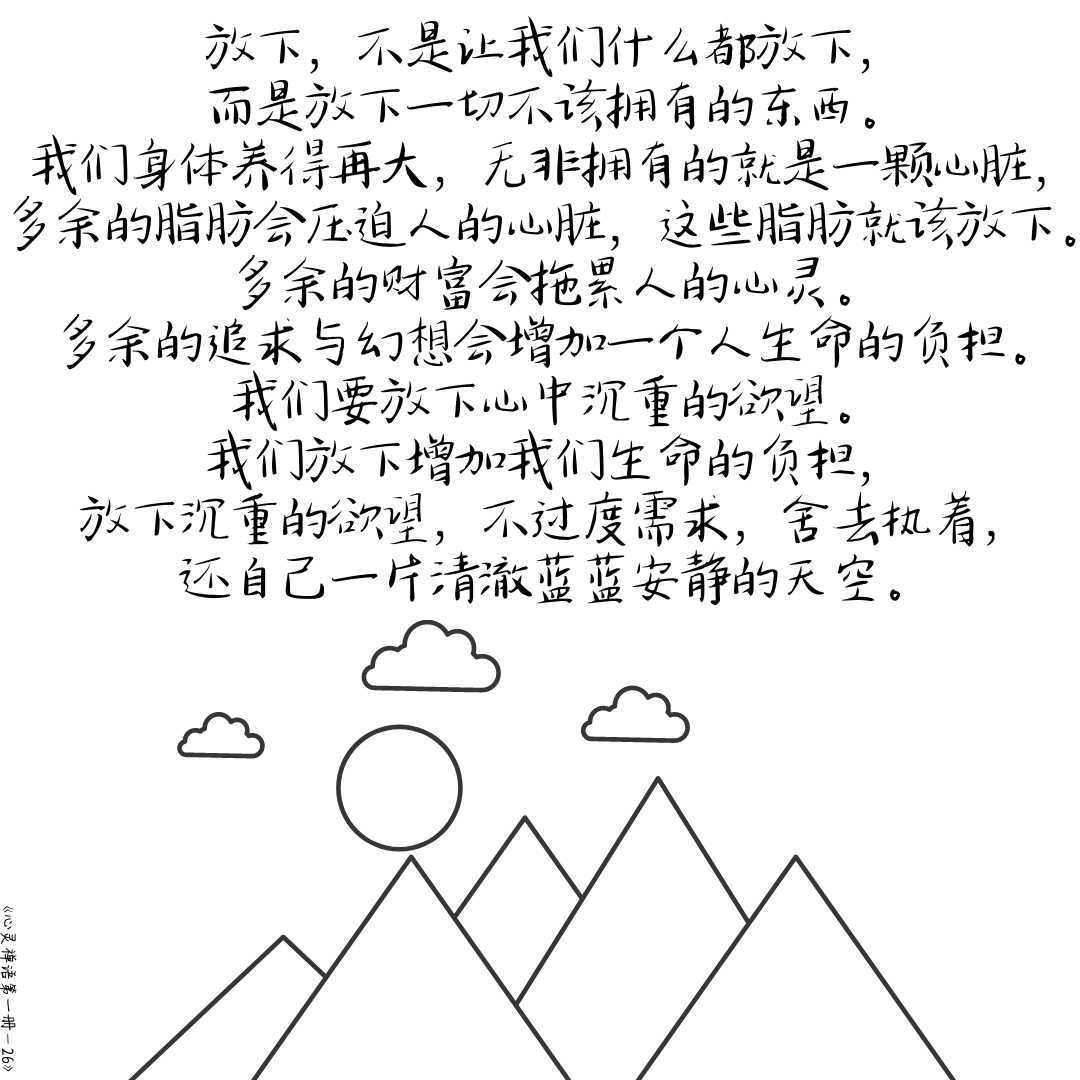 放下，不是让我们什么都放下，
而是放下一切不该拥有的东西。
我们身体养得再大，无非拥有的就是一颗心脏，
多余的脂肪会压迫人的心脏，这些脂肪就该放下。
多余的财富会拖累人的心灵。
多余的追求与幻想会增加一个人生命的负担。
我们要放下心中沉重的欲望。
我们放下增加我们生命的负担，
放下沉重的欲望，不过度需求，舍去执着，
还自己一片清澈蓝蓝安静的天空。
《心灵禅语第一册－26》